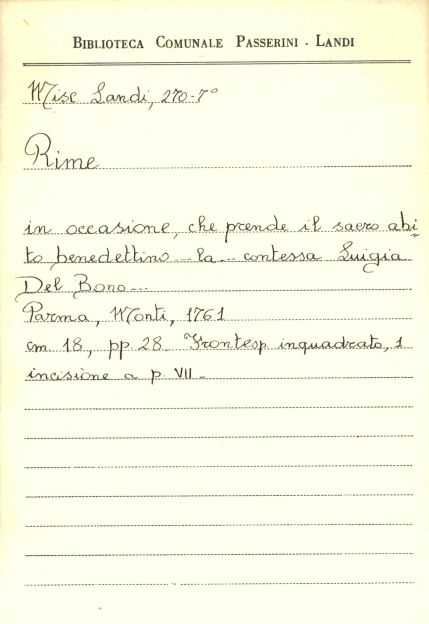 BIBLIOTECA COMUNALE PASSERINI - LANDI
Misc Landi, 270-7°
Rime
in occasione, che prende il sacro abi-
to benedettino... la... contessa Luigia
Del Bono...
Parma, Monti, 1761
cm 18, pp. 28. Frontesp. inquadrato, 1
incisione a p. VII.